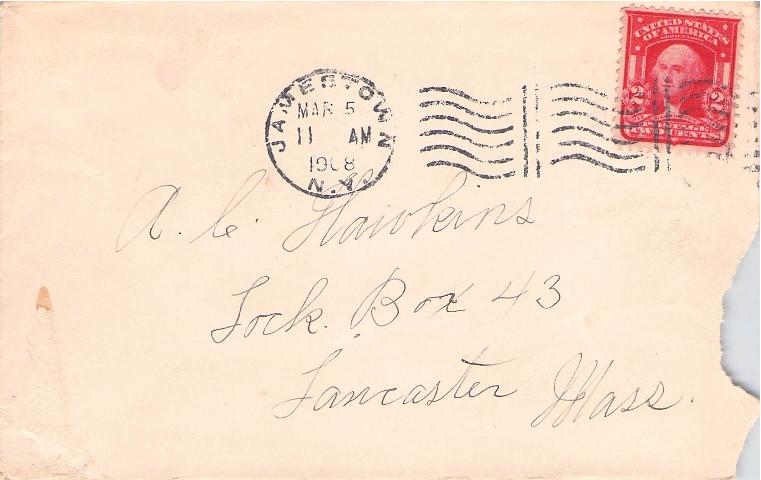 UNITED STATES
OF AMERICA
2 2
POSTAGE
TWO CENTS
JAMESTOWN
MAR 5
11 AM
1908
N.Y.
A. C. Hawkins
Lock. Box 43
Lancaster Mass.